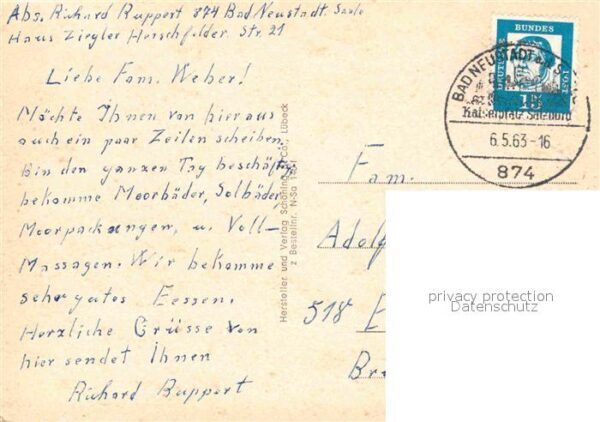 Abs. Richard Ruppert 874 Bad Neustadt. Saale
Haus Ziegler Herschfelder. Str. 21
Liebe Fam. Weber!
Möchte Ihnen von hier aus
auch ein paar Zeilen scheiben.
Bin den ganzen Tag beschäftig
bekomme Moorbäder, Solbäder
Moorpackungen, u. Voll-
Massagen. Wir bekomme
sehr gutes Eessen.
Herzliche Grüsse von
hier sendet Ihnen
Richard Ruppert
Hersteller und Verlag Schöning & Co., Lübeck
z Bestellnr. N-Sa
DEUTSCHE
BUNDES
POST
15
BAD NEUSTADT
Kaiserpfalz Salzburg
6.5.63-16
874
Fam.
Adolf
518 E
Br
privacy protection
Datenschutz